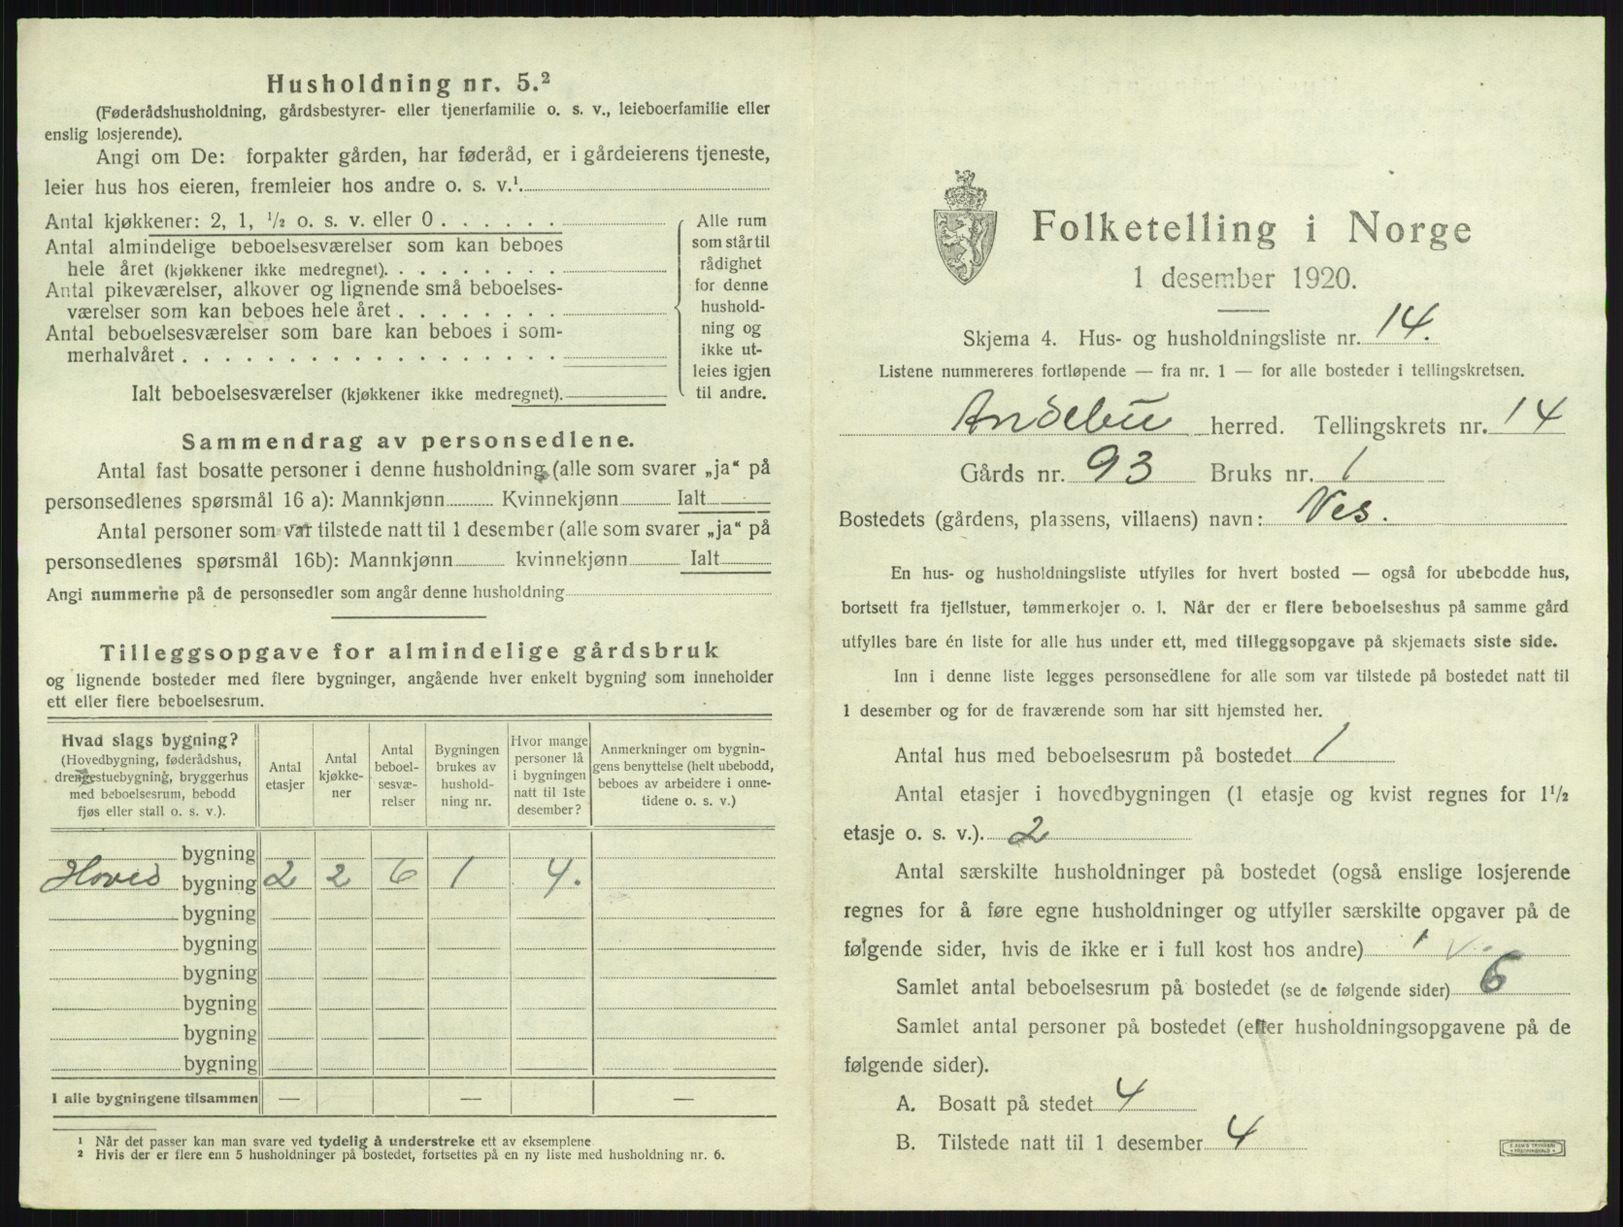 Husholdning nr. 5.²
(Føderådshusholdning, gårdsbestyrer- eller tjenerfamilie o. s. v., leieboerfamilie eller
enslig losjerende).
Angi om De: forpakter gården, har føderåd, er i gårdeierens tjeneste,
leier hus hos eieren, fremleier hos andre o. s. v.¹
Antal kjøkkener: 2, 1, ½ o. s. v. eller 0
Antal almindelige beboelsesværelser som kan beboes
hele året (kjøkkener ikke medregnet)
Antal pikeværelser, alkover og lignende små beboelses-
værelser som kan beboes hele året
Antal beboelsesværelser som bare kan beboes i som-
merhalvåret
Ialt beboelsesværelser (kjøkkener ikke medregnet)
Alle rum
som står til
rådighet
for denne
hushold-
ning og
ikke ut-
leies igjen
til andre.
Sammendrag av personsedlene.
Antal fast bosatte personer i denne husholdning (alle som svarer „ja“ på
personsedlenes spørsmål 16 a): Mannkjønn Kvinnekjønn Ialt
Antal personer som var tilstede natt til 1 desember (alle som svarer „ja“ på
personsedlenes spørsmål 16b): Mannkjønn kvinnekjønn Ialt
Angi nummerne på de personsedler som angår denne husholdning
Tilleggsopgave for almindelige gårdsbruk
og lignende bosteder med flere bygninger, angående hver enkelt bygning som inneholder
ett eller flere beboelsesrum.
Hvad slags bygning?
(Hovedbygning, føderådshus,
drengestuebygning, bryggerhus
med beboelsesrum, bebodd
fjøs eller stall o. s. v.).
Antal
etasjer
Antal
kjøkke-
ner
Antal
beboel-
sesvæ-
relser
Bygningen
brukes av
hushold-
ning nr.
Hvor mange
personer lå
i bygningen
natt til 1ste
desember?
Anmerkninger om bygnin-
gens benyttelse (helt ubebodd,
beboes av arbeidere i onne-
tidene o. s. v.)
bygning
Hoved bygning 2 2 6 1 4.
bygning
bygning
bygning
bygning
bygning
bygning
I alle bygningene tilsammen — — —
¹ Når det passer kan man svare ved tydelig å understreke ett av eksemplene
² Hvis der er flere enn 5 husholdninger på bostedet, fortsettes på en ny liste med husholdning nr. 6.
Folketelling i Norge
1 desember 1920.
Skjema 4. Hus- og husholdningsliste nr. 14.
Listene nummereres fortløpende — fra nr. 1 — for alle bosteder i tellingskretsen.
Andebu herred. Tellingskrets nr. 14
Gårds nr. 93 Bruks nr. 1
Bostedets (gårdens, plassens, villaens) navn: Ves.
En hus- og husholdningsliste utfylles for hvert bosted — også for ubebodde hus,
bortsett fra fjellstuer, tømmerkojer o. l. Når der er flere beboelseshus på samme gård
utfylles bare én liste for alle hus under ett, med tilleggsopgave på skjemaets siste side.
Inn i denne liste legges personsedlene for alle som var tilstede på bostedet natt til
1 desember og for de fraværende som har sitt hjemsted her.
Antal hus med beboelsesrum på bostedet 1
Antal etasjer i hovedbygningen (1 etasje og kvist regnes for 1½
etasje o. s. v.). 2
Antal særskilte husholdninger på bostedet (også enslige losjerende
regnes for å føre egne husholdninger og utfyller særskilte opgaver på de
følgende sider, hvis de ikke er i full kost hos andre) 1
Samlet antal beboelsesrum på bostedet (se de følgende sider) 6
Samlet antal personer på bostedet (efter husholdningsopgavene på de
følgende sider).
A. Bosatt på stedet 4
B. Tilstede natt til 1 desember 4